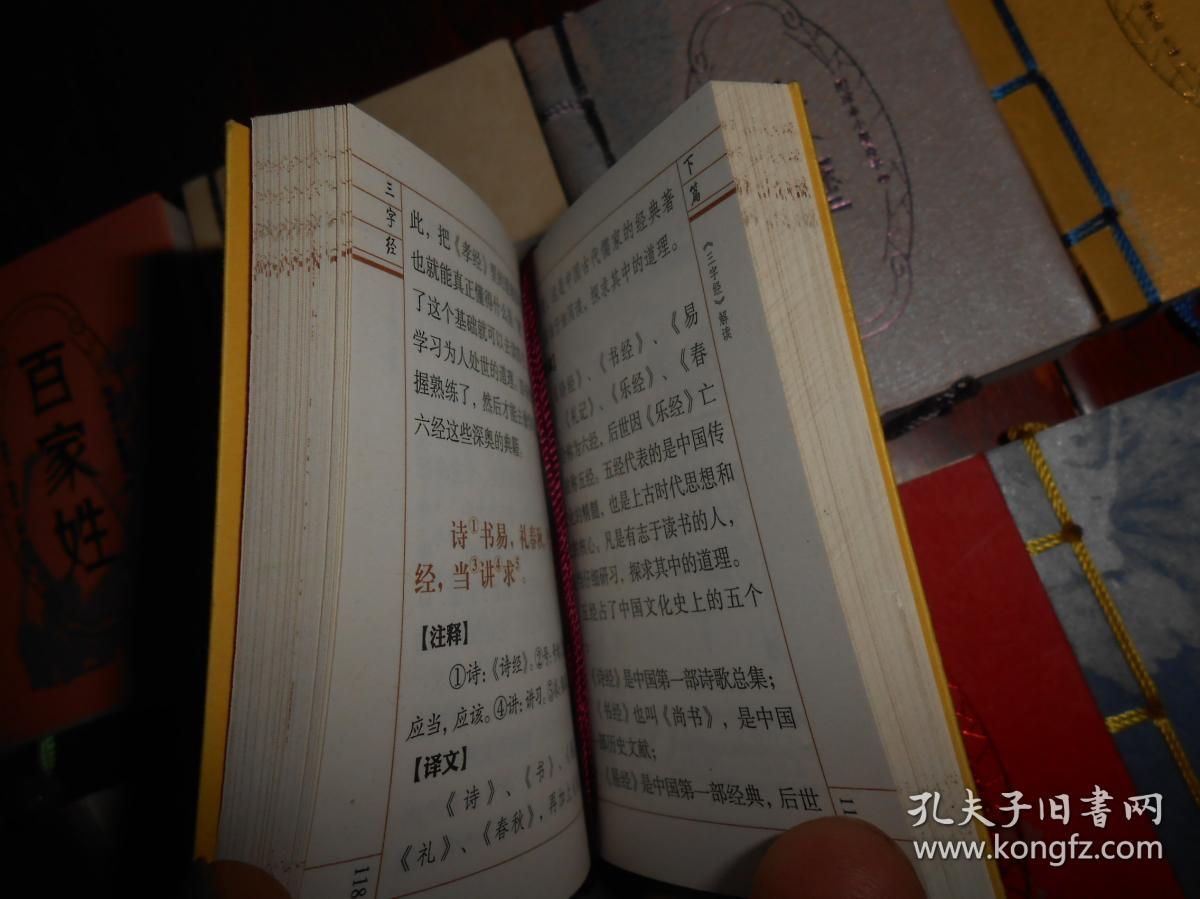 三字经
此，把《孝经》
也就能真正懂得什么
了这个基础就可以去
学习为人处世的道理
握熟练了，然后才能
六经这些深奥的典籍。
诗①书易，礼春秋，
经，当③讲④求⑤。
【注释】
①诗：《诗经》。②号：
应当，应该。④讲：讲习。⑤
【译文】
《诗》、《书》、
《礼》、《春秋》，再加上
118
下篇
《三字经》解读
是中国古代儒家的经典著
阅读，探求其中的道理。
《书经》、《易
《礼记》、《乐经》、《春
称为六经，后世因《乐经》亡
称五经。五经代表的是中国传
的精髓，也是上古时代思想和
核心。凡是有志于读书的人，
仔细研习，探求其中的道理。
五经占了中国文化史上的五个
《诗经》是中国第一部诗歌总集；
《书经》也叫《尚书》，是中国
一部历史文献；
《易经》是中国第一部经典，后世
11
百家姓
孔夫子旧書网
www.kongfz.com